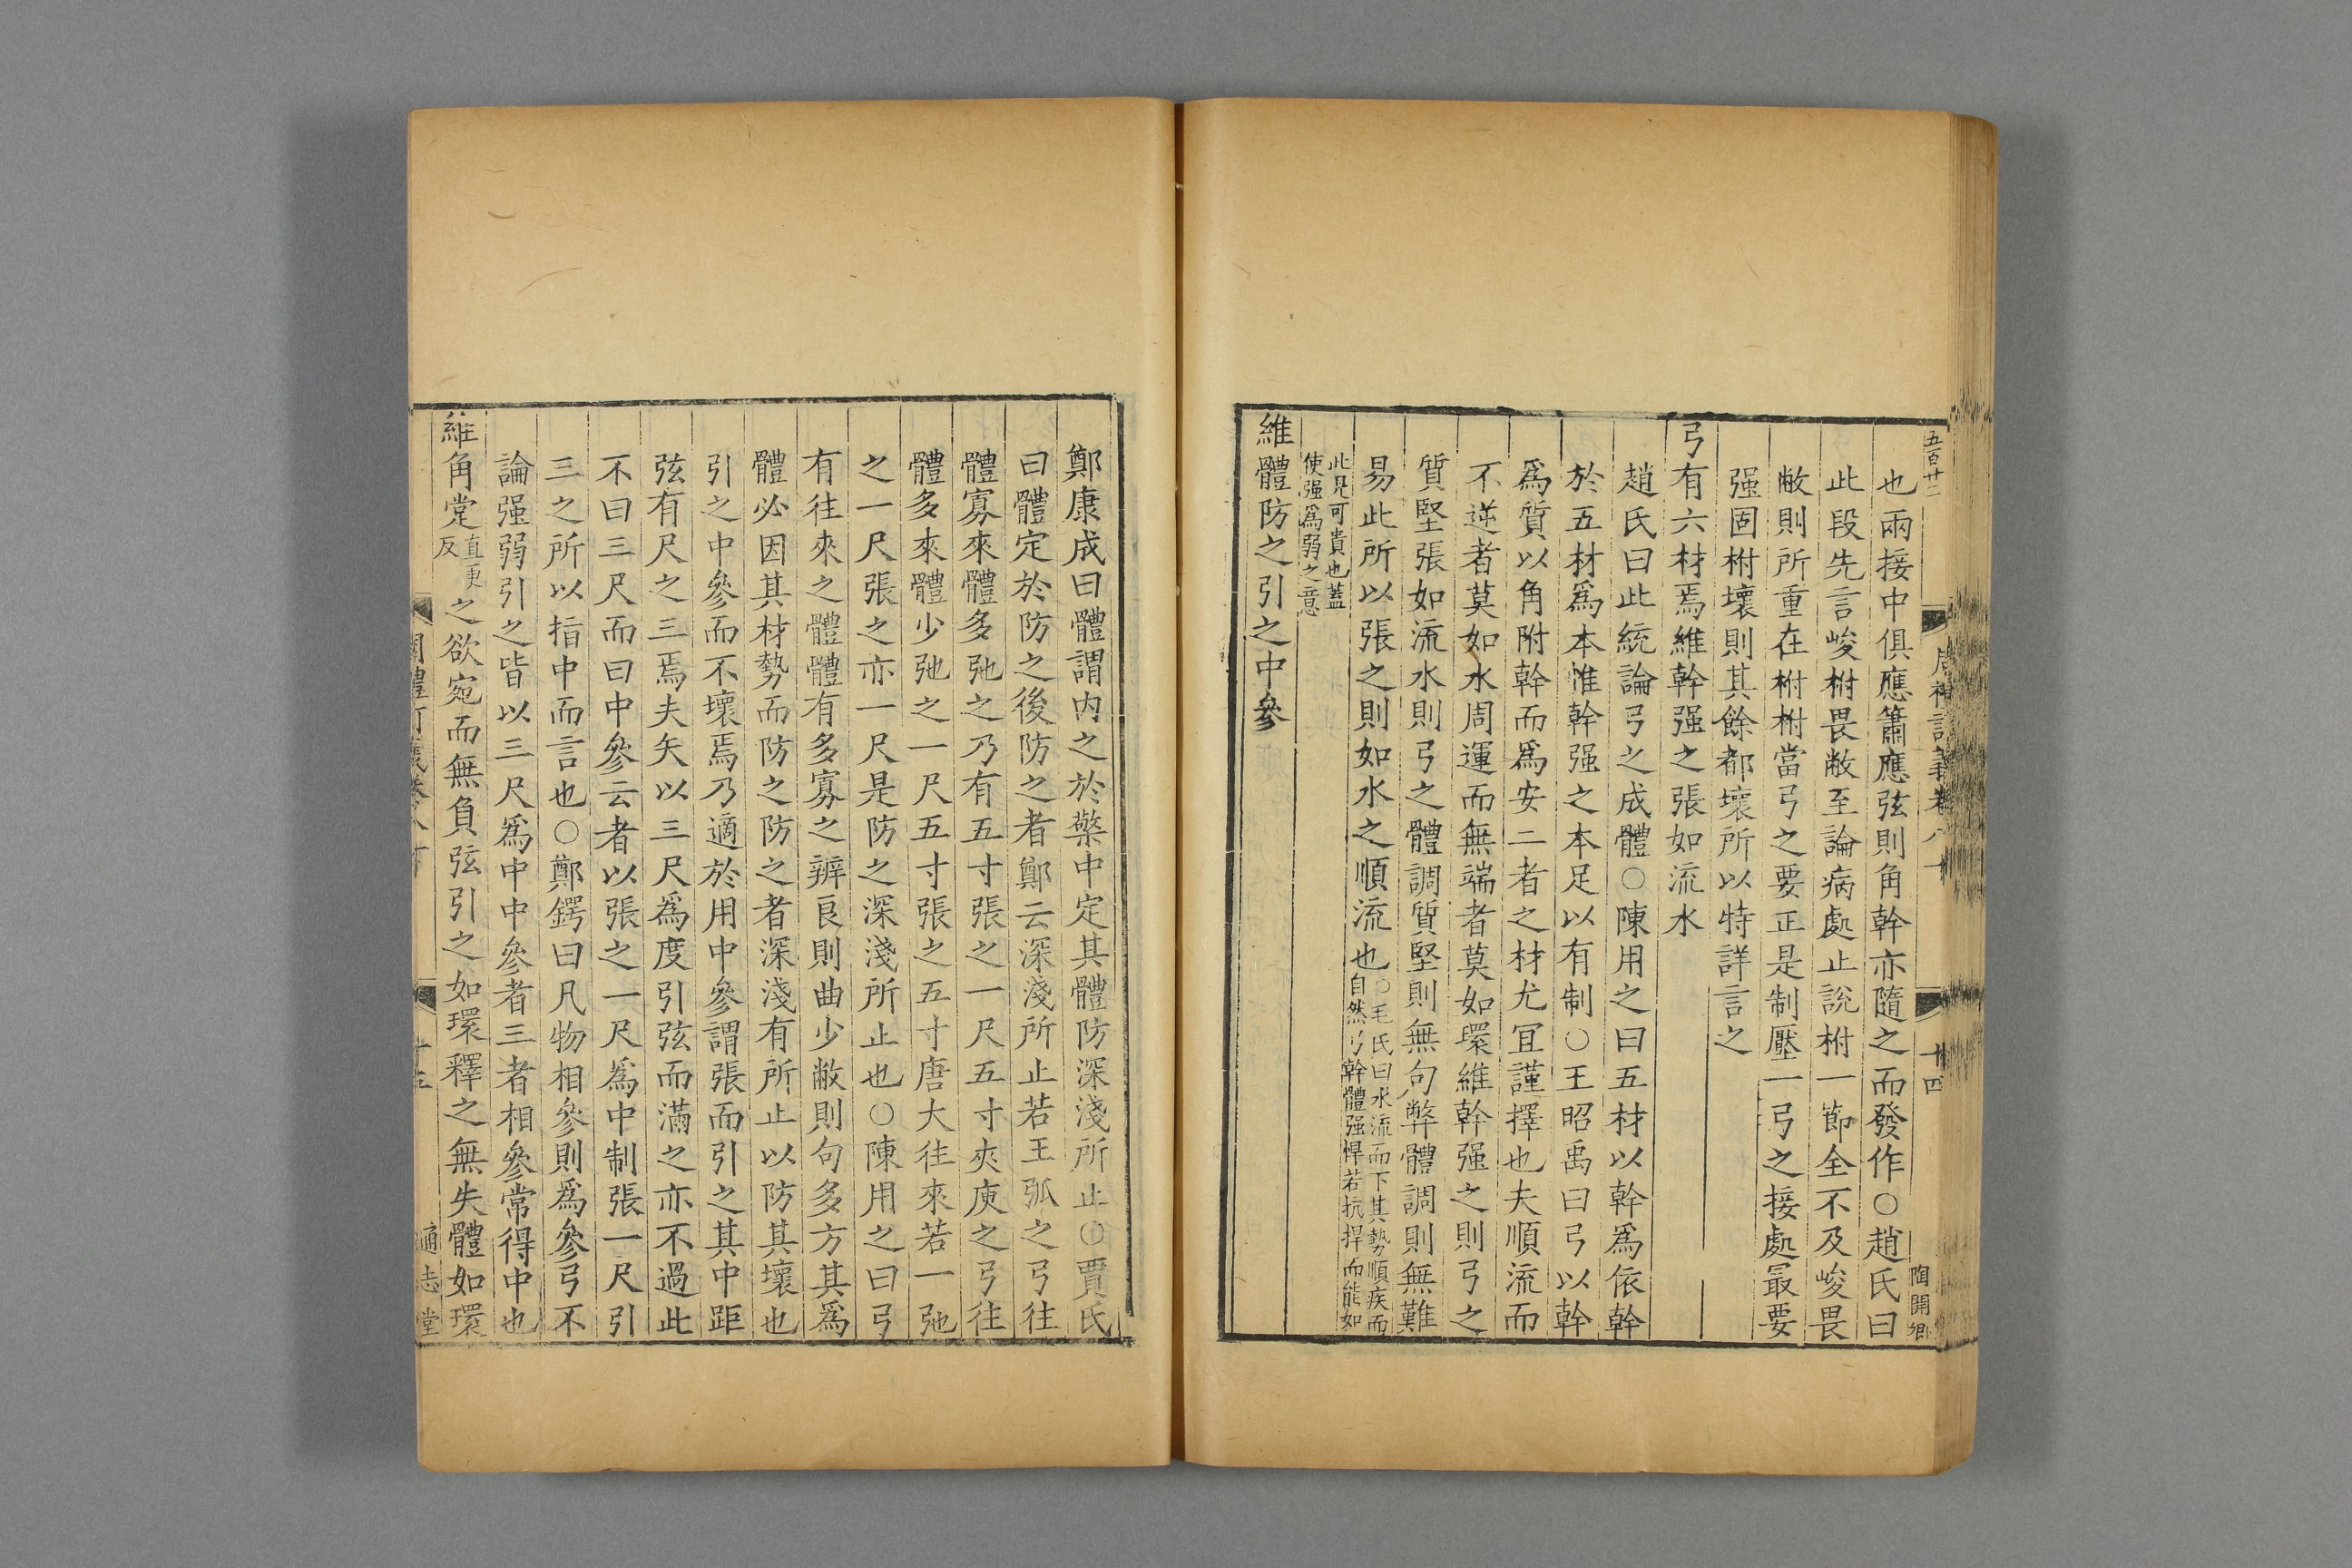 五百廿二
十四
陶開卿
也兩接中俱應簫應弦則角幹亦隨之而發作○趙氏曰
此段先言峻柎畏敝至論病處止說柎一節全不及峻畏
敝則所重在柎柎當弓之要正是制壓一弓之接處最要
强固柎壞則其餘都壞所以特詳言之
弓有六材焉維幹强之張如流水
趙氏曰此統論弓之成體○陳用之曰五材以幹爲依幹
於五材爲本惟幹强之本足以有制○王昭禹曰弓以幹
爲質以角附幹而爲安二者之材尤宜謹擇也夫順流而
不逆者莫如水周運而無端者莫如環維幹强之則弓之
質堅張如流水則弓之體調質堅則無句弊體調則無難
易此所以張之則如水之順流也○毛氏曰水流而下其勢順疾而
自然弓幹體强悍若抗捍而能如
此見可貴也蓋
使强爲弱之意
維體防之引之中參
鄭康成曰體謂内之於檠中定其體防深淺所止○賈氏
曰體定於防之後防之者鄭云深淺所止若王弧之弓往
體寡來體多弛之乃有五寸張之一尺五寸夾庾之弓往
體多來體少弛之一尺五寸張之五寸唐大往來若一弛
之一尺張之亦一尺是防之深淺所止也○陳用之曰弓
有往來之體體有多寡之辨良則曲少敝則句多方其爲
體必因其材勢而防之防之者深淺有所止以防其壞也
引之中參而不壞焉乃適於用中參謂張而引之其中距
弦有尺之三焉夫矢以三尺爲度引弦而滿之亦不過此
不曰三尺而曰中參云者以張之一尺爲中制張一尺引
三之所以指中而言也○鄭鍔曰凡物相參則爲參弓不
論强弱引之皆以三尺爲中中參者三者相參常得中也
維角㲉直更反之欲宛而無負弦引之如環釋之無失體如環
通志堂